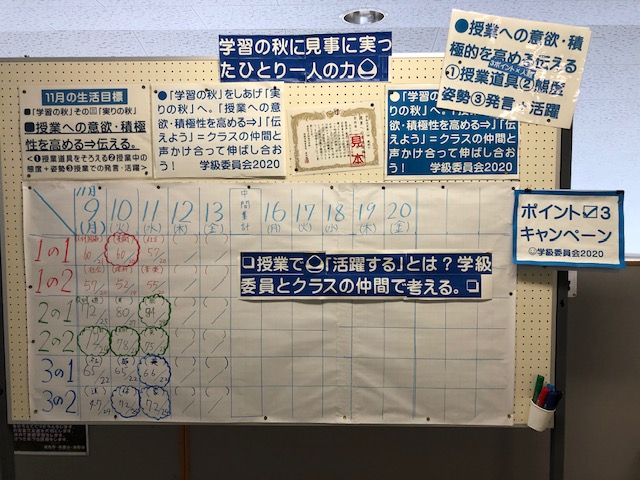 学習の秋に見事に実っ
たひとり一人の力
●授業への意欲・積
極的を高める伝える
3ポイント
①授業道具②態度
姿勢③発言・活躍
11月の生活目標
■「学習の秋」その「実りの秋」
■授業への意欲・積極
性を高める⇒伝える。
<①授業道具をそろえる②授業中の
態度+姿勢③授業での発言・活躍>
●「学習の秋」をしあげ「実
りの秋」へ。「授業への意
欲・積極性を高める⇒」「伝
えよう」=クラスの仲間と
声かけ合って伸ばし合お
う!学級委員会2020
見本
●「学習の秋」をしあげ「実
りの秋」へ。「授業への意
欲・積極性を高める⇒」「伝
えよう」=クラスの仲間と
声かけ合って伸ばし合お
う!学級委員会2020
ポイント☑3
キャンペーン
学級委員会2020
11月
9 10 11 12 13 中間集計 16 17 18 19 20
(月) (火) (水) (木) (金) (月) (火) (水) (木) (金)
❏授業で「活躍する」とは?学級
委員とクラスの仲間で考える。❏
1の1 60 60 57
1の2 57 52 55
2の1 72 80 84
2の2 72 78 75
3の1 65 65 66
3の2 47 72 72